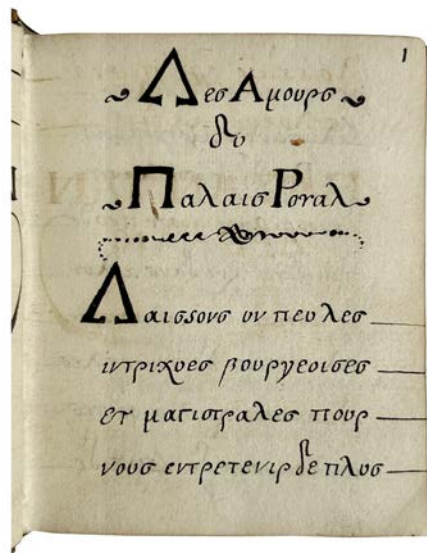 1
Λες Αμουρς
δυ
Παλαις Ροyαλ
Λαισσονς υν πευ λες
ιντριχυες βουργεοισες
ετ μαγιστραλες πουρ
νους εντρετενιρ δε πλυς